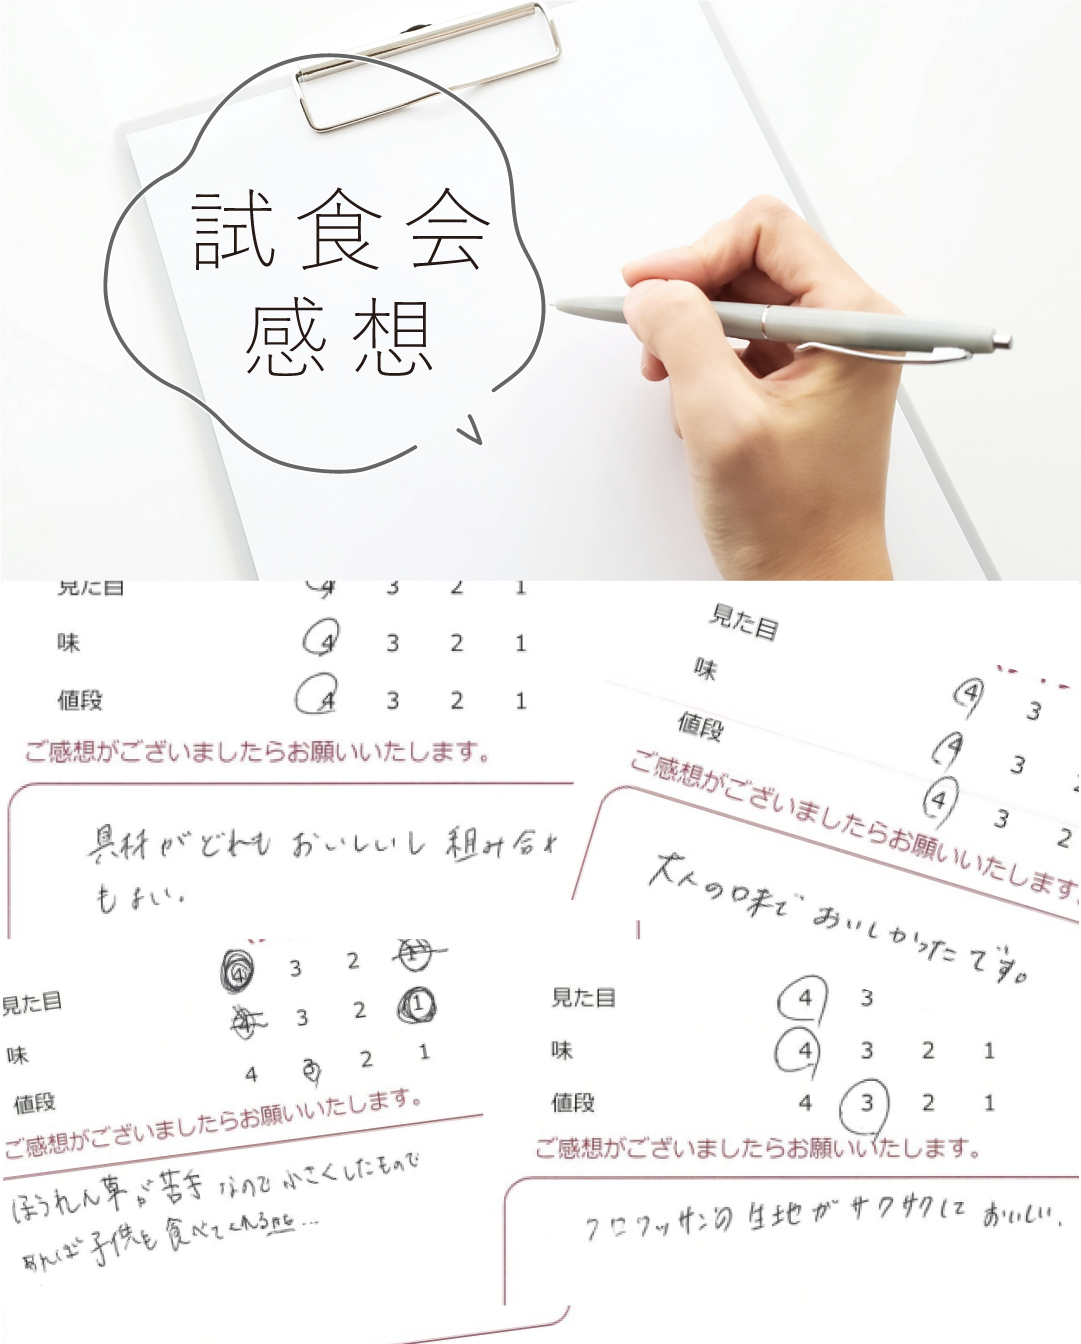 試食会
感想
見た目 4 3 2 1
味 4 3 2 1
値段 4 3 2 1
ご感想がございましたらお願いいたします。
具材がどれもおいしいし組み合わ
もよい。
見た目
味 4 3
値段 4 3
4 3 2
ご感想がございましたらお願いいたします。
大人の味で おいしかったです。
見た目 4 3 2 1
味 4 3 2 1
値段 4 3 2 1
ご感想がございましたらお願いいたします。
ほうれん草が苦手なので小さくしたもので
あれば子供も食べてくれるかも…
見た目 4 3
味 4 3 2 1
値段 4 3 2 1
ご感想がございましたらお願いいたします。
クロワッサンの生地がサクサクして おいしい.